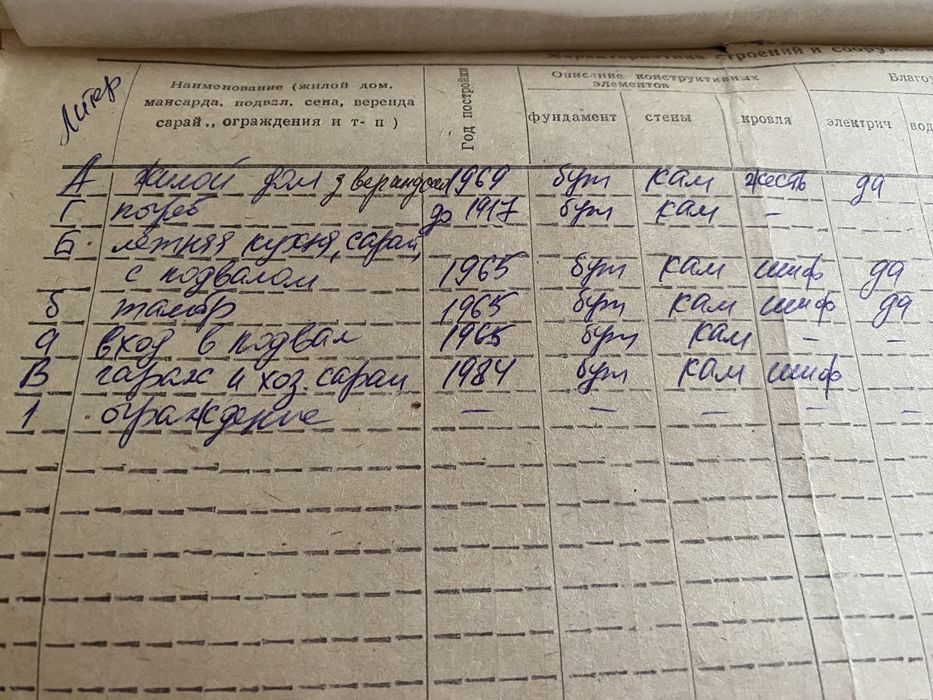 Характеристика строений и сооруж
Литер
Наименование (жилой дом,
мансарда, подвал, сена, веренда
сарай,, ограждения и т- п )
Год постройки
Описание конструктивных
элементов
Благоу
фундамент стены кровля электрич вод
А жилой дом з верандой 1969 бут кам жесть да
Г погреб до 1917 бут кам –
Б летняя кухня, сарай,
с подвалом 1965 бут кам шиф да
б тамбр 1965 бут кам шиф да
вход в подвал 1965 бут кам – –
В гараж и хоз. сараи 1984 бут кам шиф
1 ограждение – – – – –